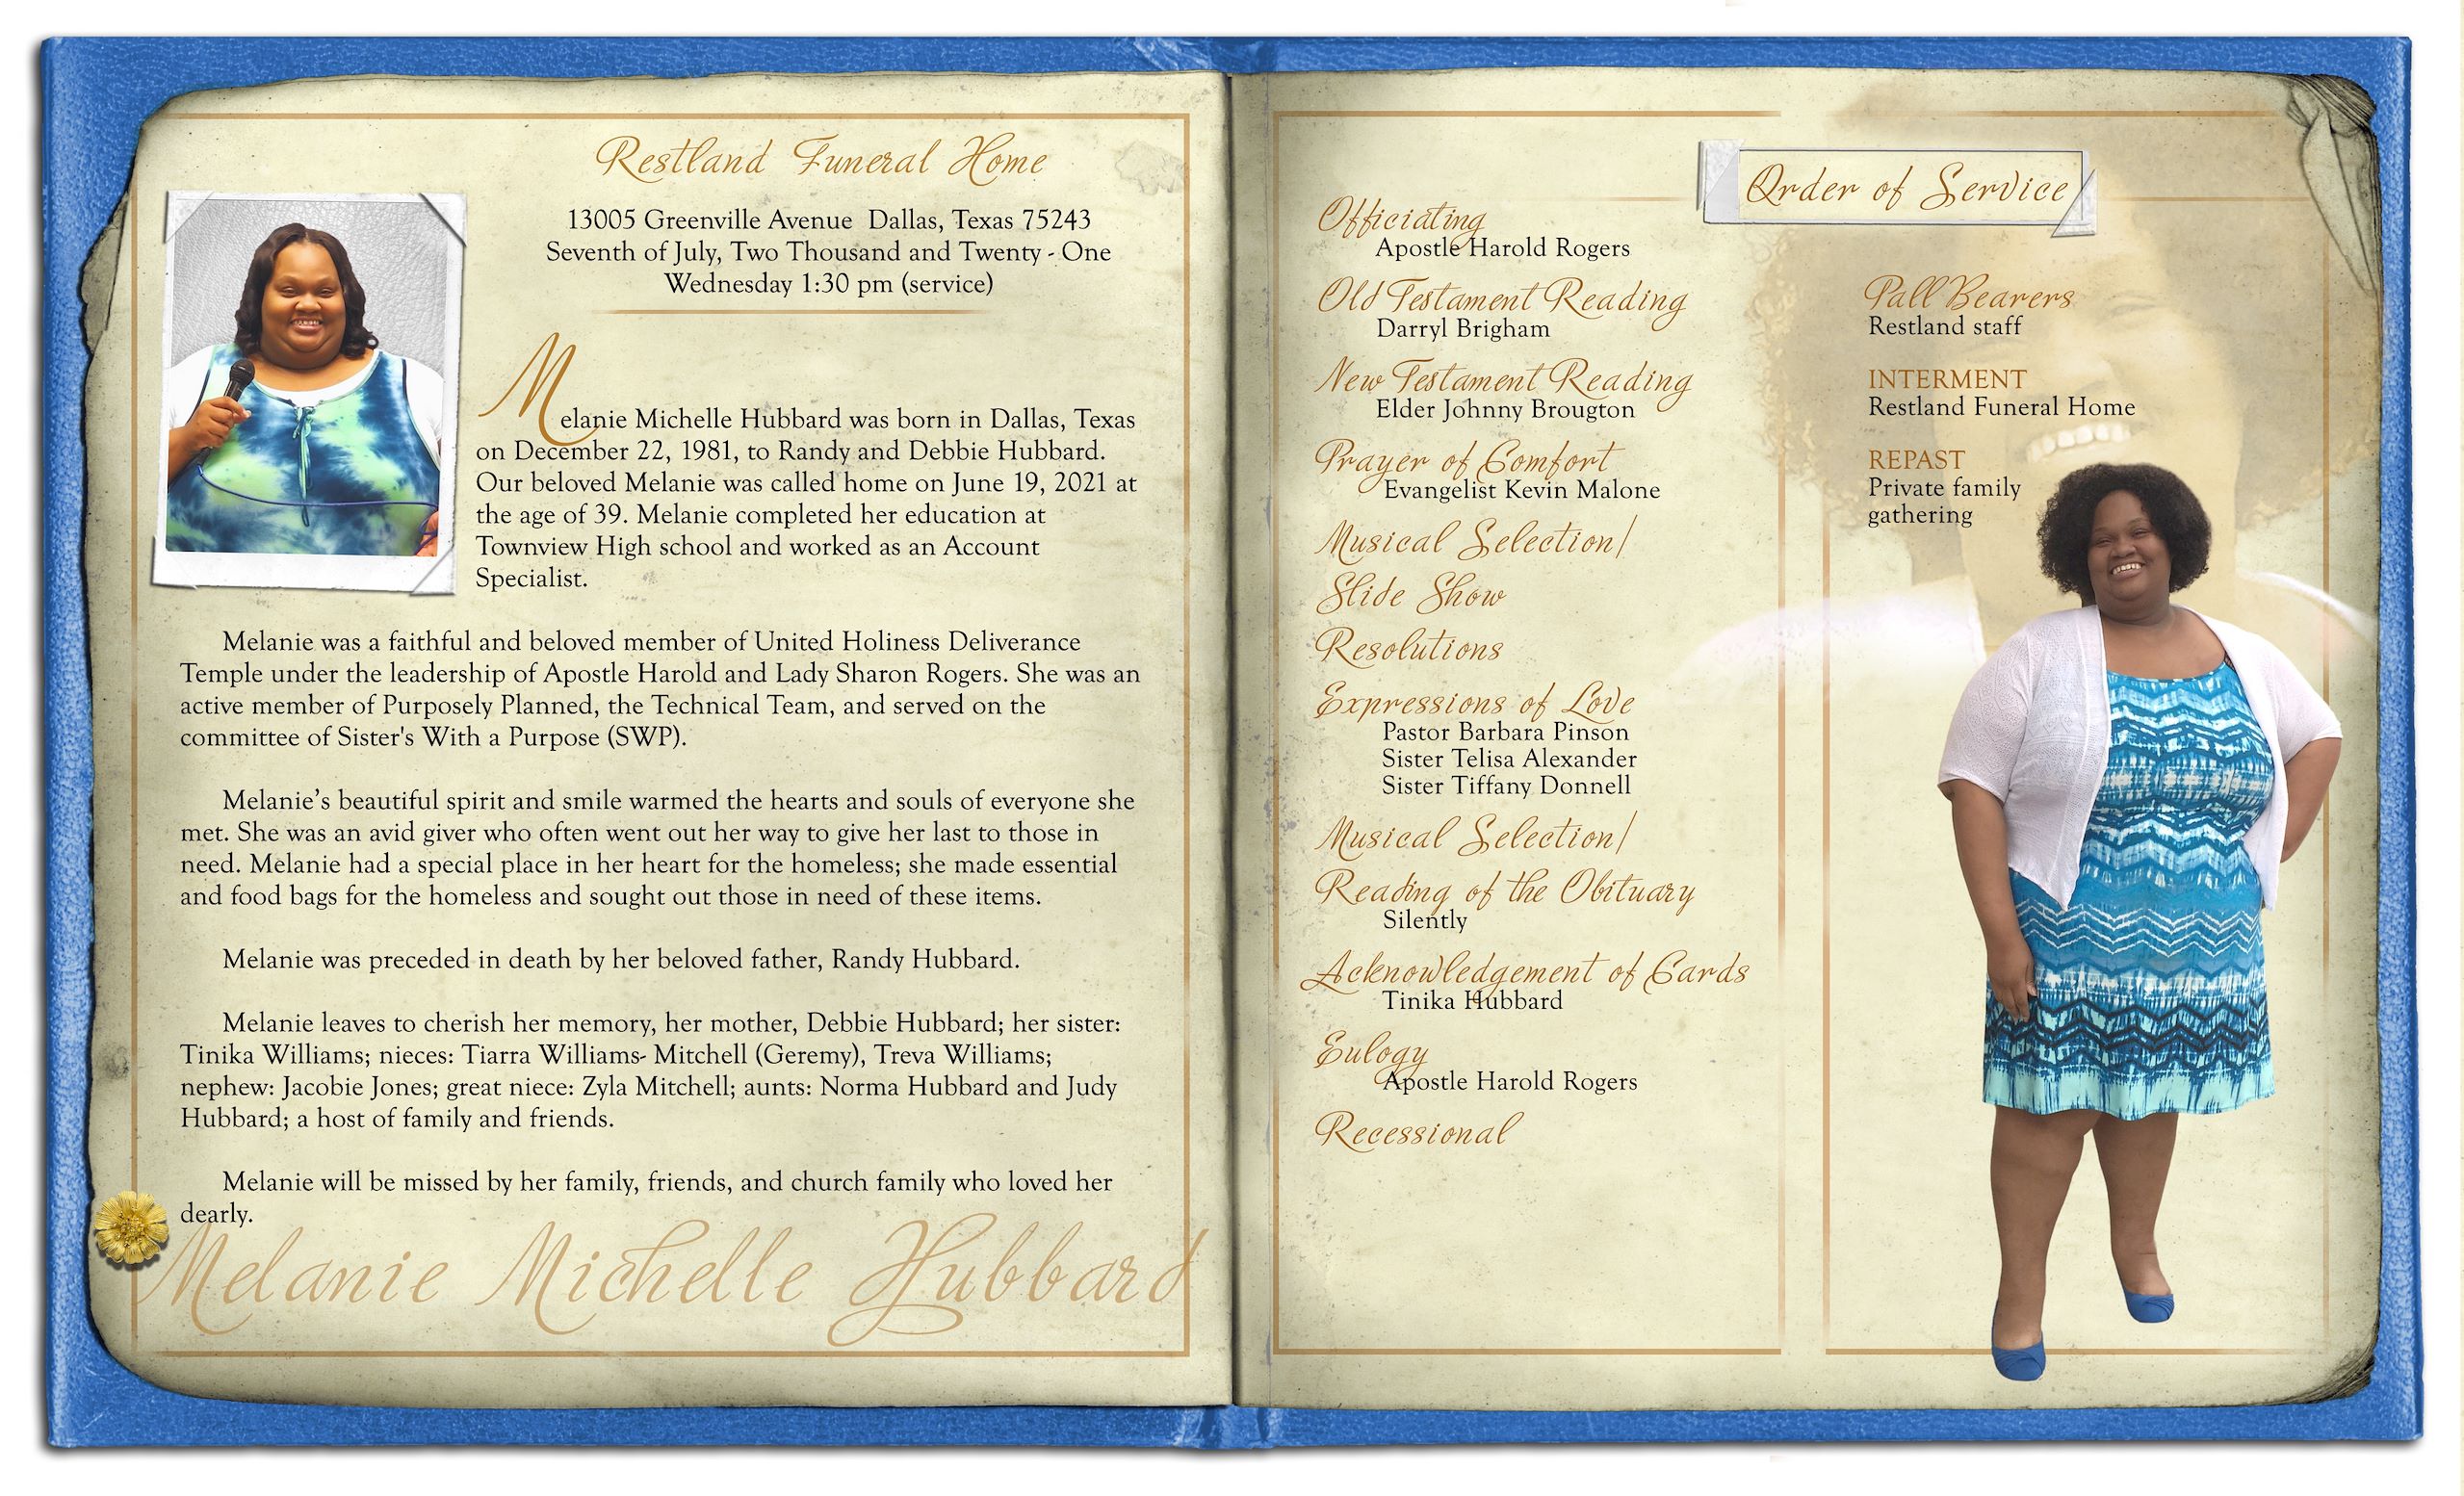 Restland Funeral Home
13005 Greenville Avenue  Dallas, Texas 75243
Seventh of July, Two Thousand and Twenty - One
Wednesday 1:30 pm (service)
Melanie Michelle Hubbard was born in Dallas, Texas
on December 22, 1981, to Randy and Debbie Hubbard.
Our beloved Melanie was called home on June 19, 2021 at
the age of 39. Melanie completed her education at
Townview High school and worked as an Account
Specialist.
Melanie was a faithful and beloved member of United Holiness Deliverance
Temple under the leadership of Apostle Harold and Lady Sharon Rogers. She was an
active member of Purposely Planned, the Technical Team, and served on the
committee of Sister's With a Purpose (SWP).
Melanie’s beautiful spirit and smile warmed the hearts and souls of everyone she
met. She was an avid giver who often went out her way to give her last to those in
need. Melanie had a special place in her heart for the homeless; she made essential
and food bags for the homeless and sought out those in need of these items.
Melanie was preceded in death by her beloved father, Randy Hubbard.
Melanie leaves to cherish her memory, her mother, Debbie Hubbard; her sister:
Tinika Williams; nieces: Tiarra Williams- Mitchell (Geremy), Treva Williams;
nephew: Jacobie Jones; great niece: Zyla Mitchell; aunts: Norma Hubbard and Judy
Hubbard; a host of family and friends.
Melanie will be missed by her family, friends, and church family who loved her
dearly.
Melanie Michelle Hubbard
Order of Service
Officiating
Apostle Harold Rogers
Old Testament Reading
Darryl Brigham
New Testament Reading
Elder Johnny Brougton
Prayer of Comfort
Evangelist Kevin Malone
Musical Selection/
Slide Show
Resolutions
Expressions of Love
Pastor Barbara Pinson
Sister Telisa Alexander
Sister Tiffany Donnell
Musical Selection/
Reading of the Obituary
Silently
Acknowledgement of Cards
Tinika Hubbard
Eulogy
Apostle Harold Rogers
Recessional
Pall Bearers
Restland staff
INTERMENT
Restland Funeral Home
REPAST
Private family
gathering